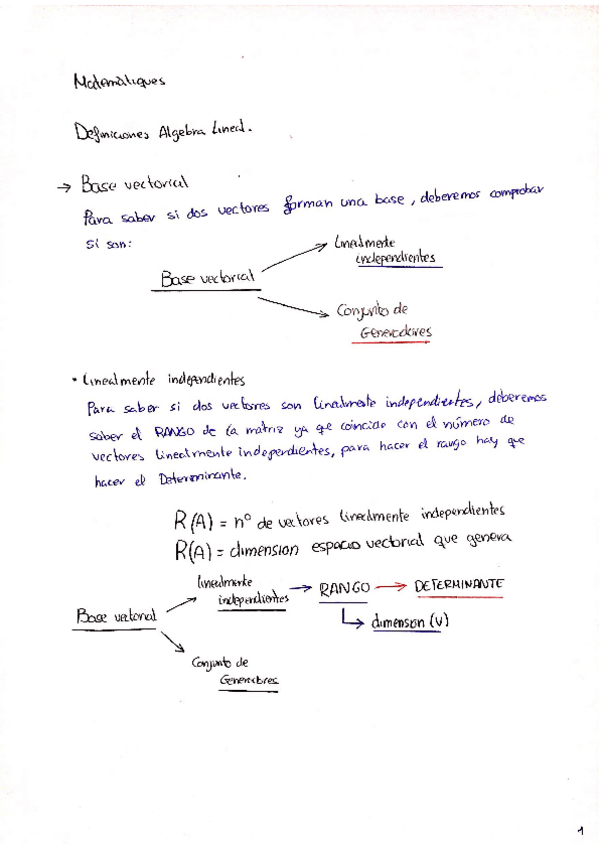 Matemàtiques
Definiciones Algebra Lineal.
→ Base vectorial
Para saber si dos vectores forman una base, deberemos comprobar
si son:
Base vectorial
Linealmente
independientes
Conjunto de
Generadores
• Linealmente independientes
Para saber si dos vectores son linealmente independientes, deberemos
saber el RANGO de la matriz ya qe coincide con el número de
vectores linealmente independientes, para hacer el rango hay que
hacer el Determinante.
R(A) = nº de vectores linealmente independientes
R(A) = dimension espacio vectorial que genera
Base vectorial
linealmente
independientes → RANGO → DETERMINANTE
dimension (V)
Conjunto de
Generadores
1